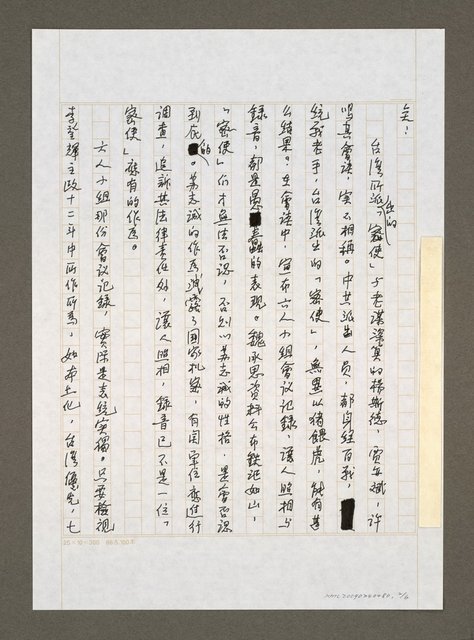 會！
台灣所派出的「密使」与老謀深算的楊斯德，賈亦斌，許
鳴真會談，実不相稱。中共派出人员，都身經百戰，
統戰老手，台灣派出的「密使」，無異以豬餵虎，能有甚
么結果？在會談中，宣布六人小組會議记録，讓人照相与
録音，都是愚蠢的表現。魏承思資料公布鉄记如山，
「密使」们才無法否認，否則以苏志誠的性格，是會否認
到底的。苏志誠的作為洩露了國家机密，有関單位應進行
調查，追訴其法律責任外，讓人照相，録音已不是一位「
密使」應有的作為。
六人小組那份會议记録，實際是去統实獨。只要檢視
李登輝主政十二年中所作所為，如本土化，台灣優先，七
25×12=300 86.5.100本
NMTL20090260480, 2/6